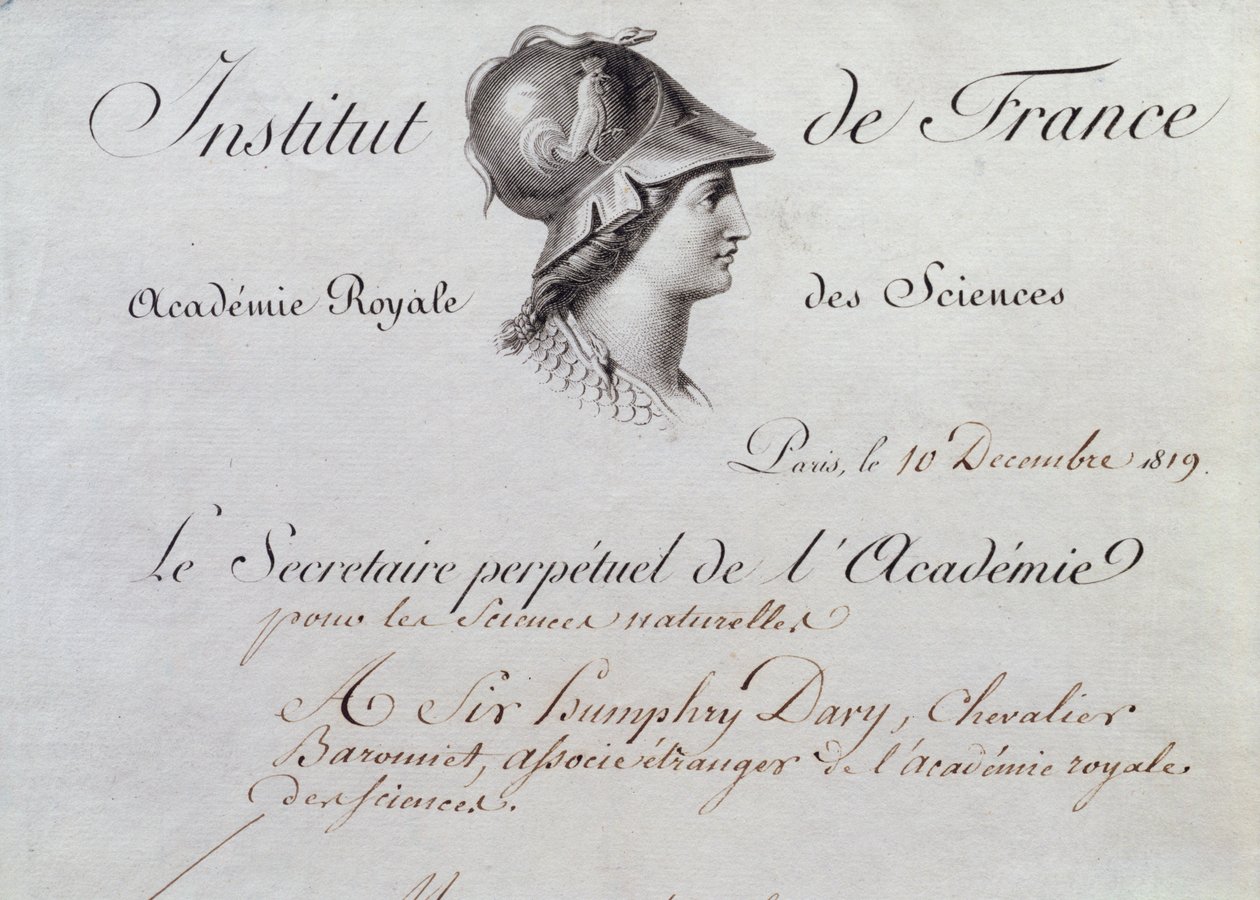 Institut de France
Académie Royale des Sciences
Paris, le 10 Decembre 1819.
Le Secretaire perpétuel de l'Académie
pour les Sciences naturelles
A Sir Humphry Davy, Chevalier
Baronnet, associé étranger de l'académie royale
des sciences.